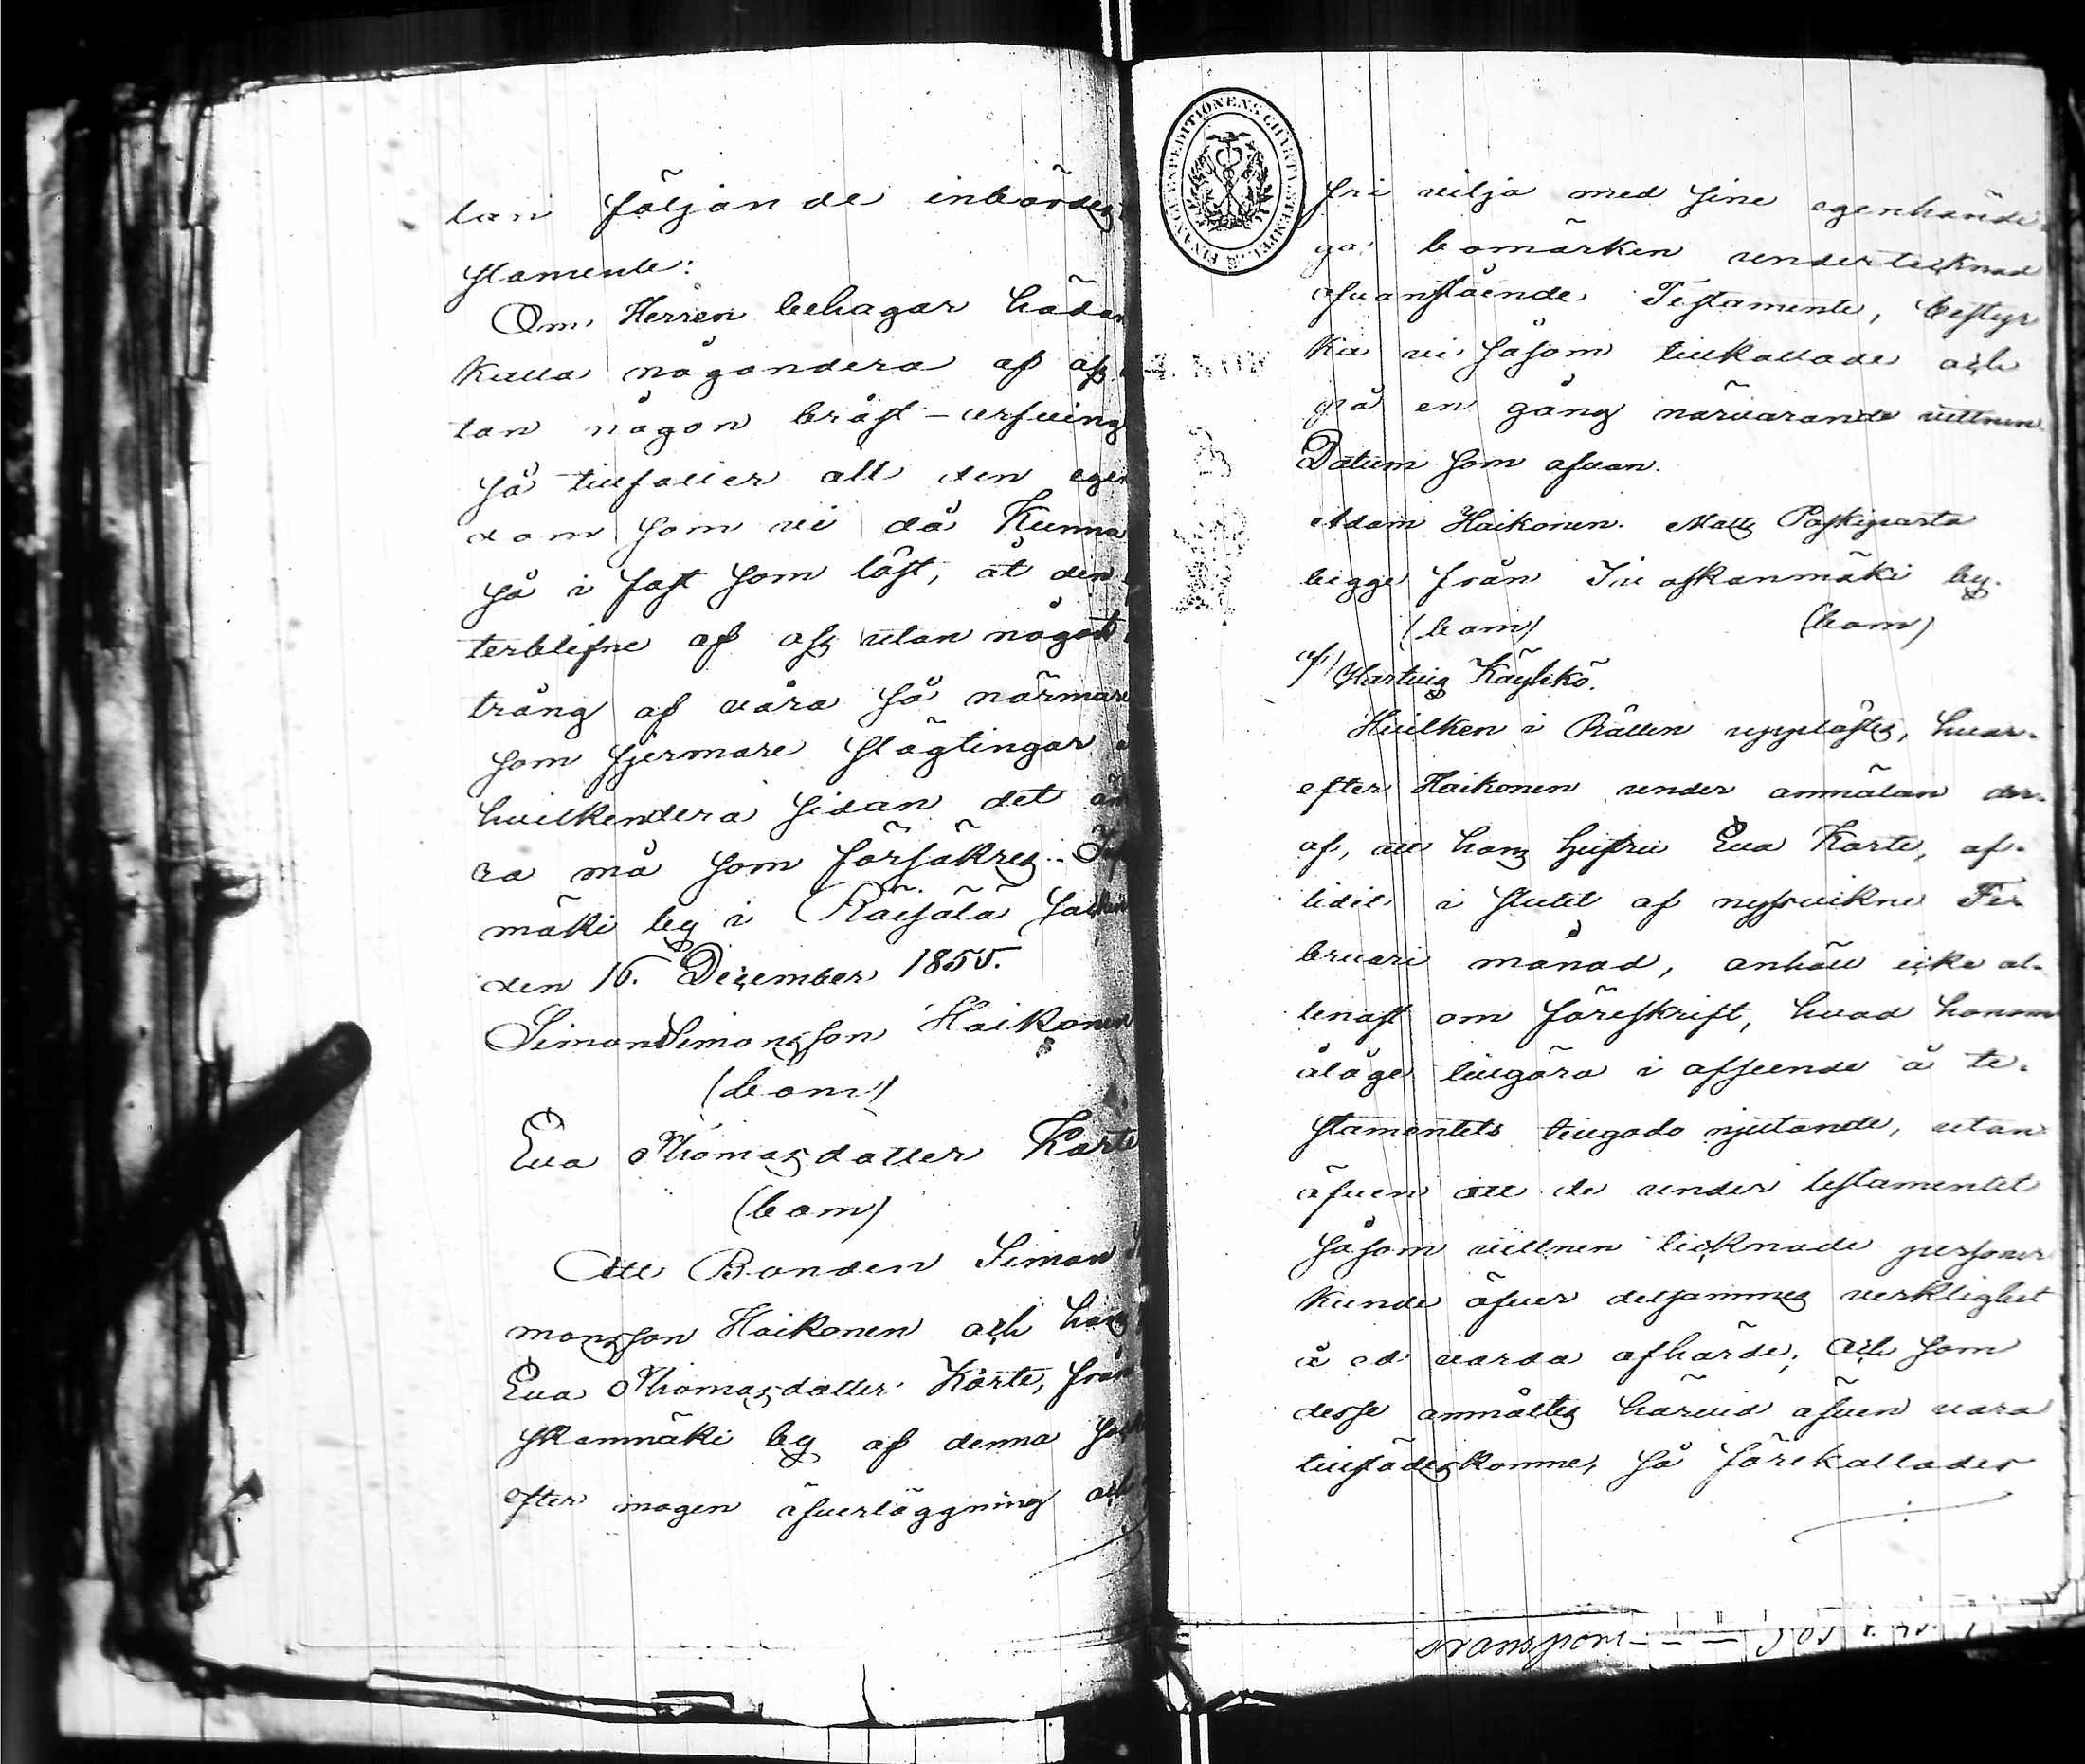 tan följande inbördes
stamente:
Om Herren behagar hädan
kalla någondera af oss
tan någon bröst-arfving
så tillfaller all den egen
dom som vi då kunna
så i fast som löst, åt den
terblifne af oss utan något
trång af våra så närmare
som fjermare slägtingar
hvilkendera sidan det än
ra må som försäkras.
mäki by i Räisälä Socken
den 16. December 1855.
Simon Simonsson Haikonen
(bom)
Eva Thomasdotter Karte
(bom)
Att Bonden Simon
monsson Haikonen och hans
Eva Thomasdotter Karte, från
skanmäki by af denna
efter mogen öfverläggning och
FINANCE EXPEDITIONENS CHARTÆ STEMPEL
fri vilja med sine egenhändi-
ga bomärken undertecknad
ofvanstående Testamente, bestyr
ka vi såsom tillkallade och
på en gång närvarande vittnen.
Datum som ofvan.
Adam Haikonen. Matts Paskiparta
begge från Ivaskanmäki by.
(bom) (bom)
af/ Hartvig Käyhkö.
Hvilken i Rätten upplästes, hvar-
efter Haikonen under anmälan der-
af, att hans hustru Eva Karte, af-
lidit i slutet af nyssvikne Fe-
bruari månad, anhöll icke al-
lenast om föreskrift, hvad honom
ålåge tillgöra i afseende å te-
stamentets tillgodo njutande, utan
äfven att de under testamentet
såsom vittnen tecknade personer
kunde öfver detsammas verklighet
å ed varda afhörde; Och som
desse anmältes härvid äfven vara
tillstädeskomne, så förekallades
Transport